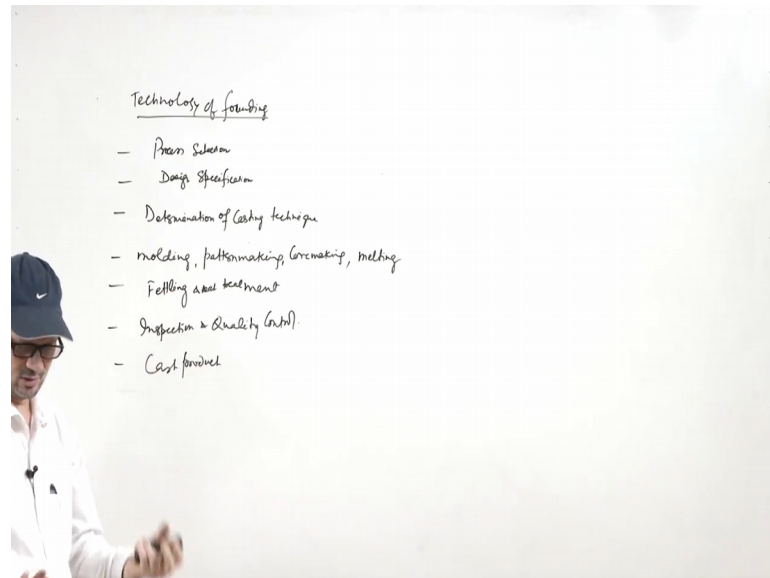 Technology of founding
- Process Selection
- Design Specification
- Determination of Casting technique
- molding, patternmaking, Coremaking, melting
- Fettling and treatment
- Inspection & Quality Control.
- Cast product